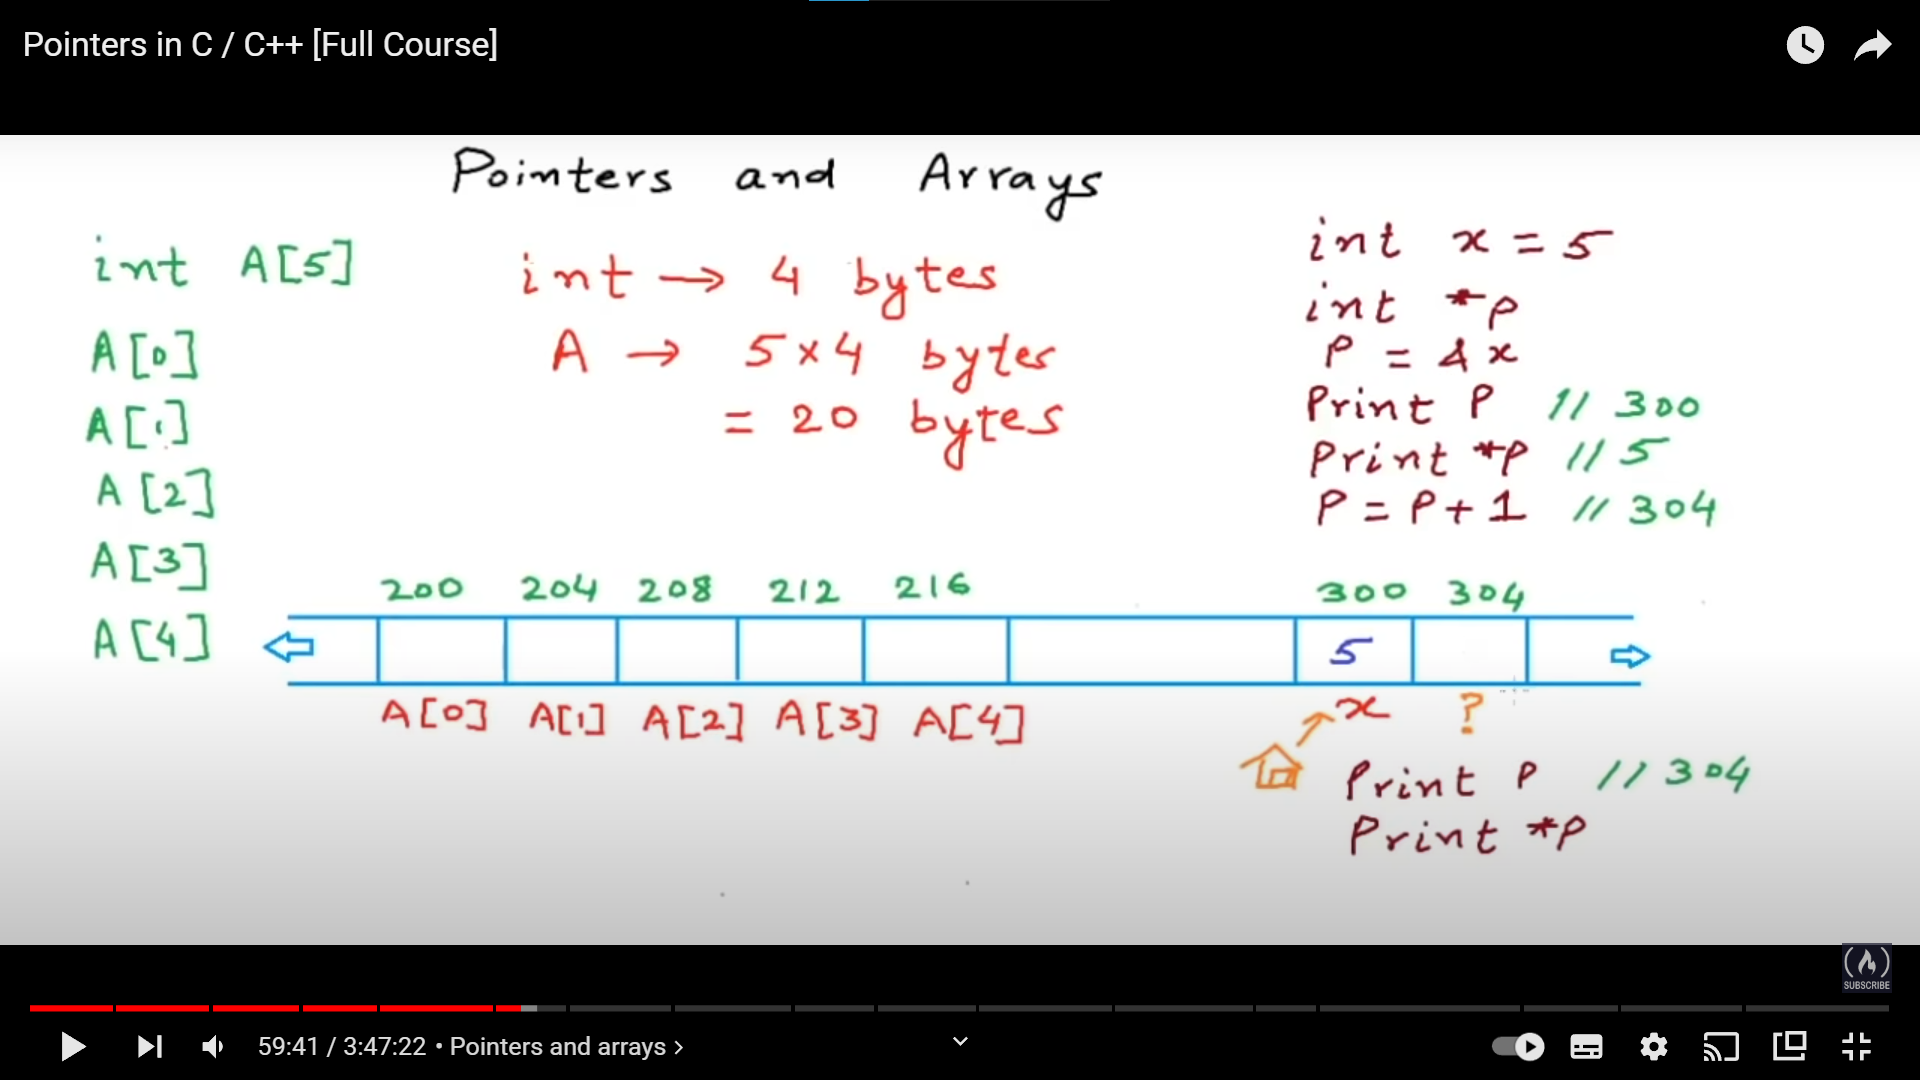 Pointers in C / C++ [Full Course]
Pointers and Arrays
int A[5]
A[0]
A[1]
A[2]
A[3]
A[4]
int → 4 bytes
A → 5 x 4 bytes
= 20 bytes
int x = 5
int *p
P = &x
Print P // 300
Print *P // 5
P = P + 1 // 304
200 204 208 212 216 300 304
5
A[0] A[1] A[2] A[3] A[4] x ?
Print P // 304
Print *P
SUBSCRIBE
59:41 / 3:47:22 • Pointers and arrays >